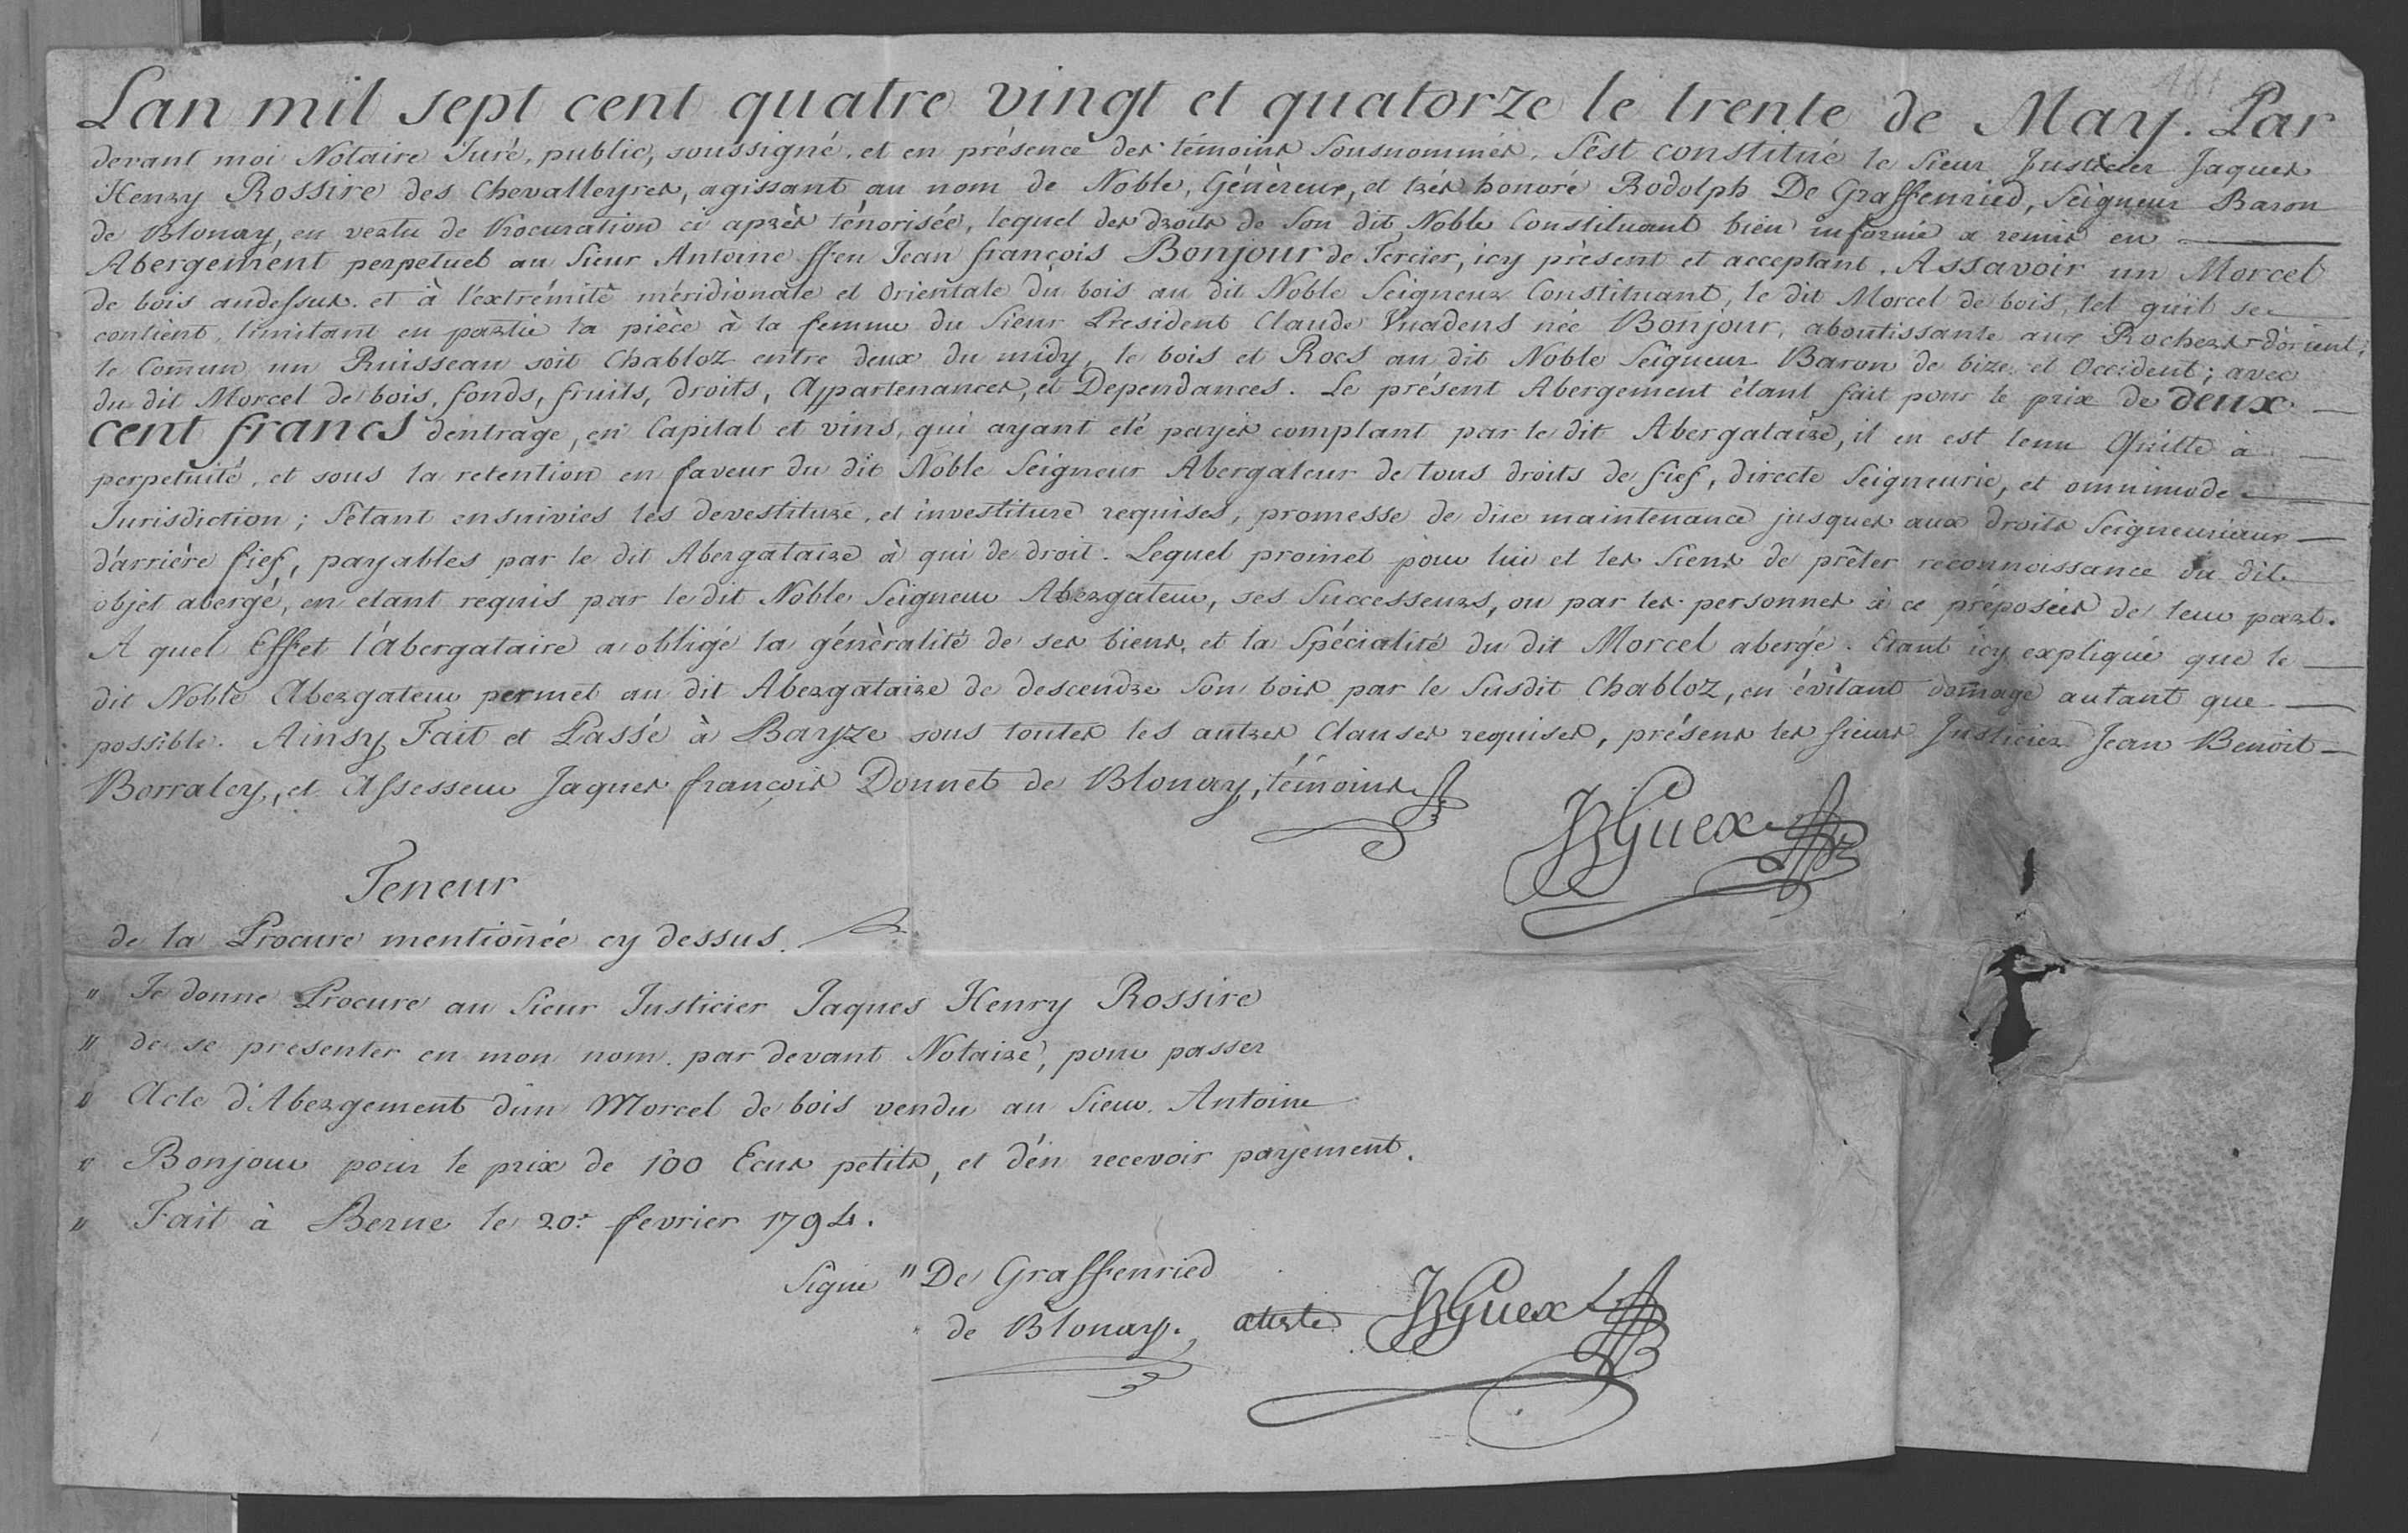 181
Lan mil sept cent quatre vingt et quatorze le trente de May. Par
devant moi Notaire Juré, public, soussigné, et en présence des témoins Sousnommés, S'est constitué le Sieur Justicier Jaques
Henry Rossire des Chevalleyres, agissant au nom de Noble, Généreux, et très honoré Rodolph De Graffenried, Seigneur Baron
de Blonay, en vertu de Procuration ci après ténorisée, lequel des droits de Son dit Noble Constituant bien informé a remis en
Abergement perpetuel au Sieur Antoine ffeu Jean françois Bonjour de Tercier, icy présent et acceptant. Assavoir un Morcel
de bois audessus et à l'extrémité méridionale et Orientale du bois au dit Noble Seigneur Constituant, le dit Morcel de bois, tel qu'il se
contient, limitant en partie la pièce à la femme du Sieur President Claude Vuadens née Bonjour, aboutissante aux Rochers d'orient,
le Com̄un un Ruisseau soit Chabloz entre deux du midy, le bois et Rocs au dit Noble Seigneur Baron de bize et Occident; avec
du dit Morcel de bois, fonds, fruits, droits, Appartenances, et Dependances. Le présent Abergement étant fait pour le prix de deux
cent francs d'entrage, en Capital et vins, qui ayant été payés comptant par le dit Abergataire, il en est tenu Quitte à
perpetuité, et sous la retention en faveur du dit Noble Seigneur Abergateur de tous droits de fief, directe Seigneurie, et omnimode
Jurisdiction; S'étant ensuivies les devestiture, et investiture requises, promesse de due maintenance jusques aux droits Seigneuriaux
d'arrière fief, payables par le dit Abergataire à qui de droit. Lequel promet pour lui et les Siens de prêter reconnoissance du dit
objet abergé, en etant requis par le dit Noble Seigneur Abergateur, ses Successeurs, ou par les personnes à ce préposées de leur part.
A quel Effet l'Abergataire a obligé la généralité de ses biens, et la Spécialité du dit Morcel abergé. Etant icy expliqué que le
dit Noble Abergateur permet au dit Abergataire de descendre Son bois par le Susdit Chabloz, en évitant dom̄age autant que
possible. Ainsy Fait et Passé à Bayze sous toutes les autres Clauses requises, présens les sieurs Justicier Jean Benoit
Borraley, et Assesseur Jaques françois Donnet de Blonay, témoins
JSGuex
Teneur
de la Procure mention̄ée cy dessus.
" Je donne Procure au Sieur Justicier Jaques Henry Rossire
" de se presenter en mon nom par devant Notaire, pour passer
" Acte d'Abergement d'un Morcel de bois vendu au Sieur Antoine
" Bonjour pour le prix de 100 Ecus petits, et d'en recevoir payement.
" Fait à Berne le 20e fevrier 1794.
Signé " De Graffenried
" de Blonay. atteste JSGuex